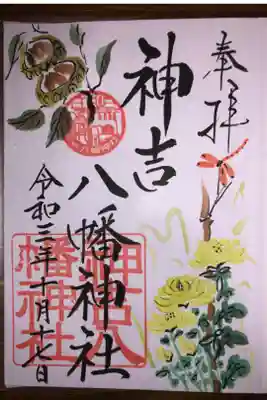 奉拝
神吉
八幡神社
令和三年十月十七日
神吉八
幡神社